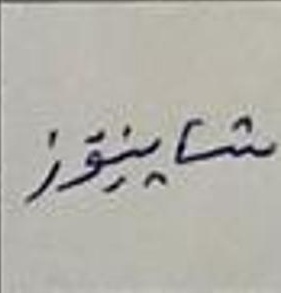 شاینوز